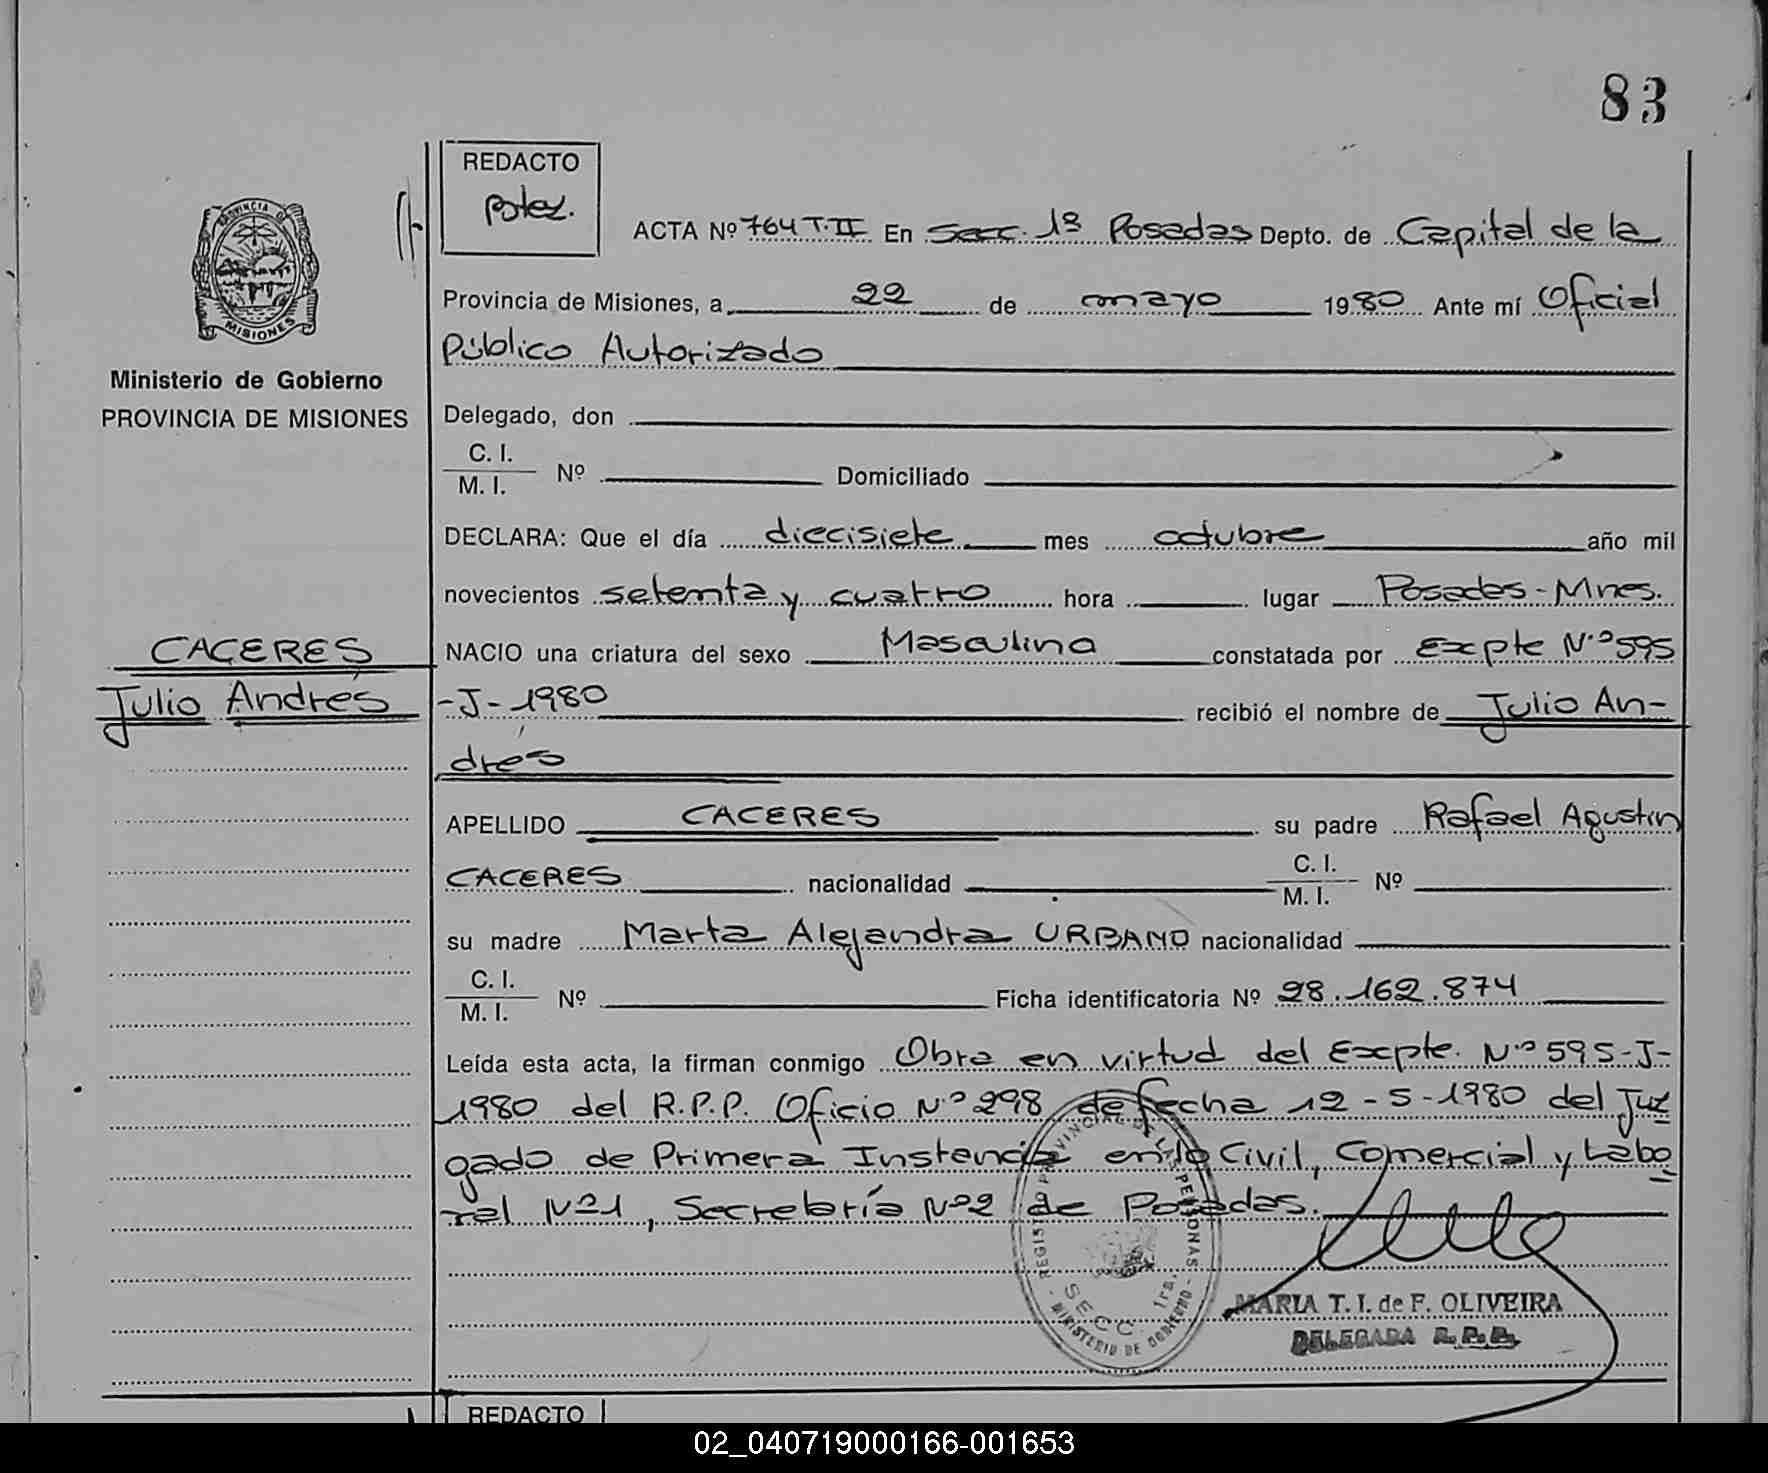 83
REDACTO
PROVINCIA DE
MISIONES
ACTA Nº 764 T.II En Secc. 1ª Posadas Depto. de Capital de la
Provincia de Misiones, a 22 de mayo 1980 Ante mí Oficial
Público Autorizado
Ministerio de Gobierno
PROVINCIA DE MISIONES
Delegado, don
C. I.
M. I. Nº Domiciliado
DECLARA: Que el día diecisiete mes octubre año mil
novecientos setenta y cuatro hora lugar Posadas - Mnes.
CACERES
Julio Andrés
NACIO una criatura del sexo Masculino constatada por Expte Nº 595
-J-1980 recibió el nombre de Julio An-
drés
APELLIDO CACERES su padre Rafael Agustin
CACERES nacionalidad C. I. M. I. Nº
su madre Marta Alejandra URBANO nacionalidad
C. I.
M. I. Nº Ficha identificatoria Nº 28.162.874
Leída esta acta, la firman conmigo Obra en virtud del Expte. Nº 595-J-
1980 del R.P.P. Oficio Nº 298 de fecha 12-5-1980 del Juz
gado de Primera Instancia en lo Civil, Comercial y Labo
ral Nº1, Secretaría Nº2 de Posadas.
REGISTRO PROVINCIAL DE LAS PERSONAS
SECC. 1ra.
MINISTERIO DE GOBIERNO
MARIA T. I. de F. OLIVEIRA
DELEGADA R. P. P.
REDACTO
02_040719000166-001653